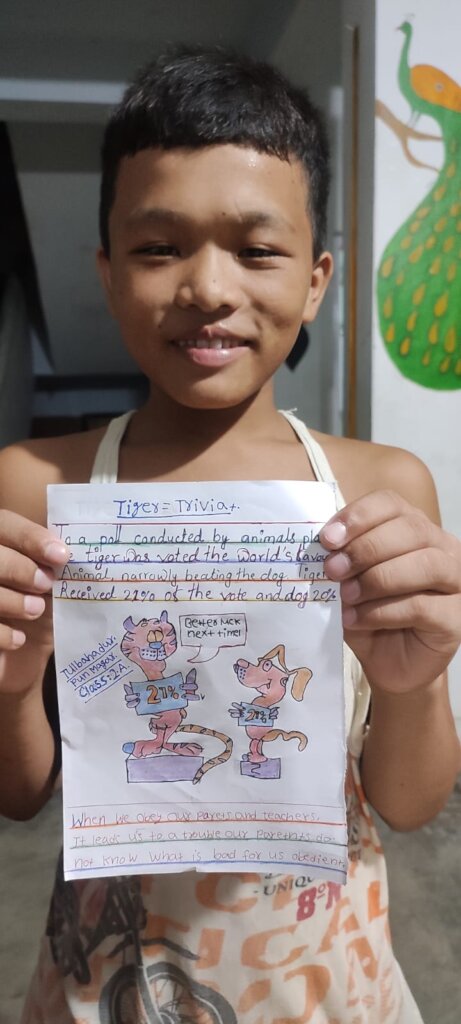 Tiger = Trivia.
To a poll conducted by animals pla
e tiger was voted the World's favou
Animal, narrowly beating the dog. Tiger
Received 21% of the vote and dog 20%
Better luck
next time!
Tulbahadur.
Pun Magar.
Class: 2.A.
21%
2
When we obey our parets and teachers.
It leads us to a trouble our parents do
not know what is bad for us obedient
UNIQU